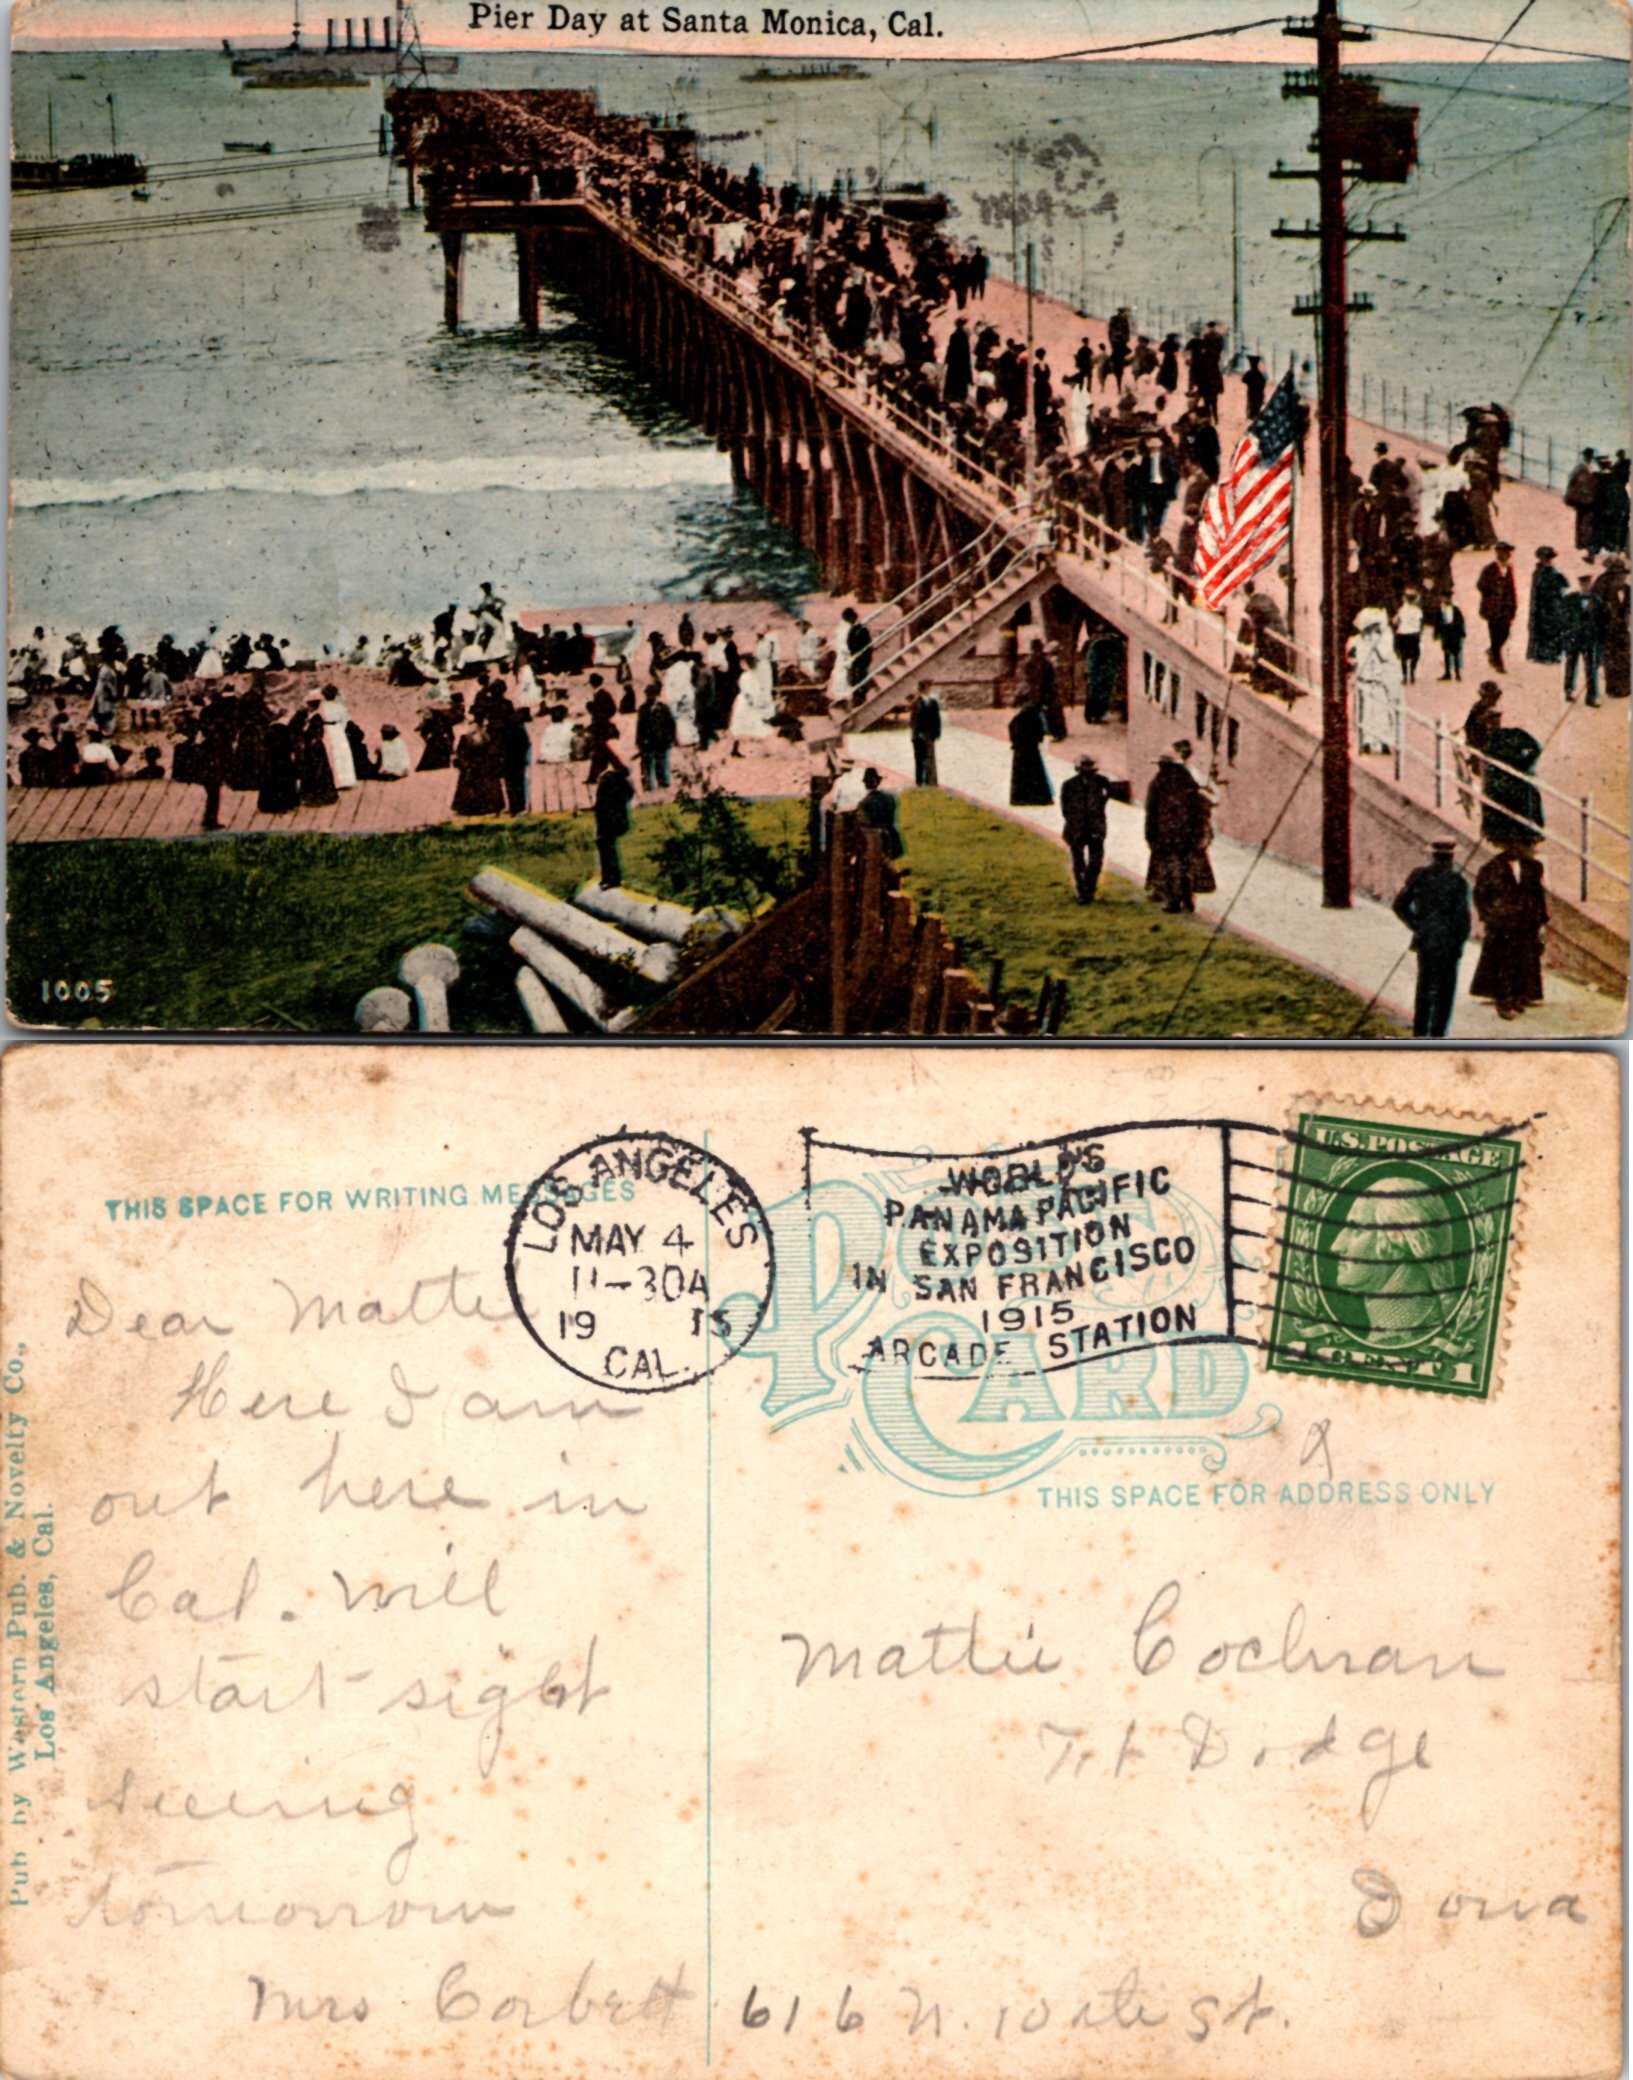 Pier Day at Santa Monica, Cal.
1005
THIS SPACE FOR WRITING MESSAGES
LOS ANGELES
MAY 4
11-30A
19 15
CAL.
WORLD'S
PANAMA PACIFIC
EXPOSITION
IN SAN FRANCISCO
1915
ARCADE STATION
U.S. POSTAGE
1
POST
CARD
THIS SPACE FOR ADDRESS ONLY
Dear Mattie
Here I am
out here in
Cal. will
start sight
seeing
tomorrow
Mrs Corbett
Mattie Cochran
Ft Dodge
Iowa
616 N. 10 the St.
Pub by Western Pub. & Novelty Co.,
Los Angeles, Cal.